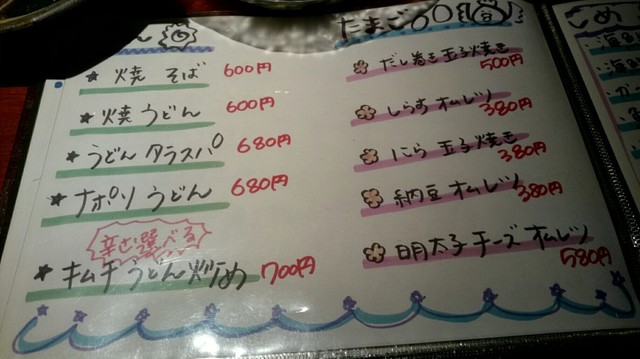 焼 そば 600円
焼 うどん 600円
うどん タラスパ 680円
ナポリ うどん 680円
辛さ選べる
キムチ うどん炒め 700円
たまご
だし巻き玉子焼き 500円
しらす オムレツ 380円
にら 玉子焼き 380円
納豆 オムレツ 380円
明太子チーズ オムレツ 580円